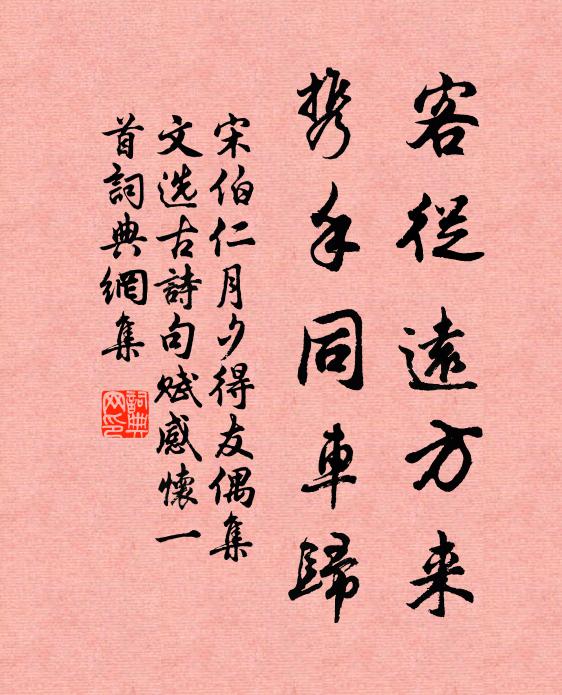 客從遠方来
携手同車歸
宋伯仁月夕得友偶集
文选古詩句赋感懷一
首詞典網集
詞典
网印